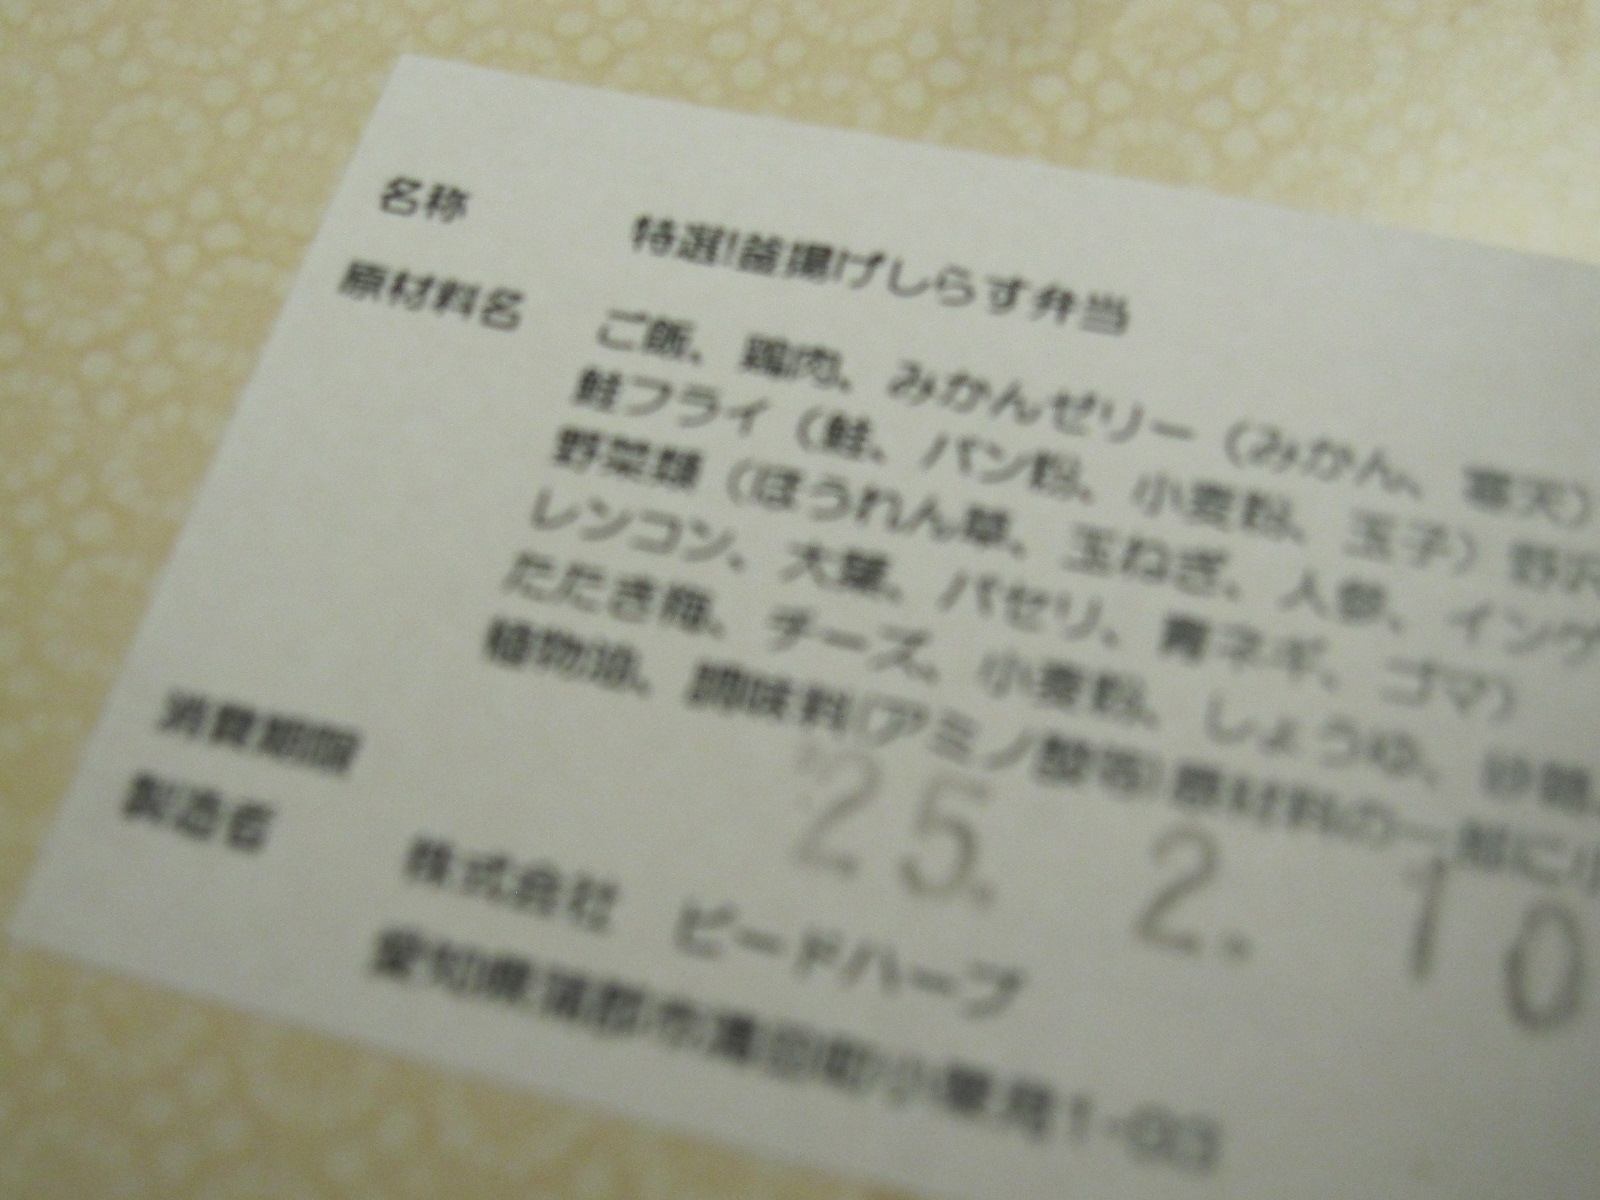 名称 特選!釜揚げしらす弁当
原材料名 ご飯、鶏肉、みかんゼリー（みかん、寒天）
鮭フライ（鮭、パン粉、小麦粉、玉子）野沢
野菜類（ほうれん草、玉ねぎ、人参、インゲ
レンコン、大葉、パセリ、青ネギ、ゴマ）
たたき梅、チーズ、小麦粉、しょうゆ、砂糖、
植物油、調味料(アミノ酸等)原材料の一部に小
消費期限 25. 2. 10
製造者 株式会社 ビードハーブ
愛知県蒲郡市